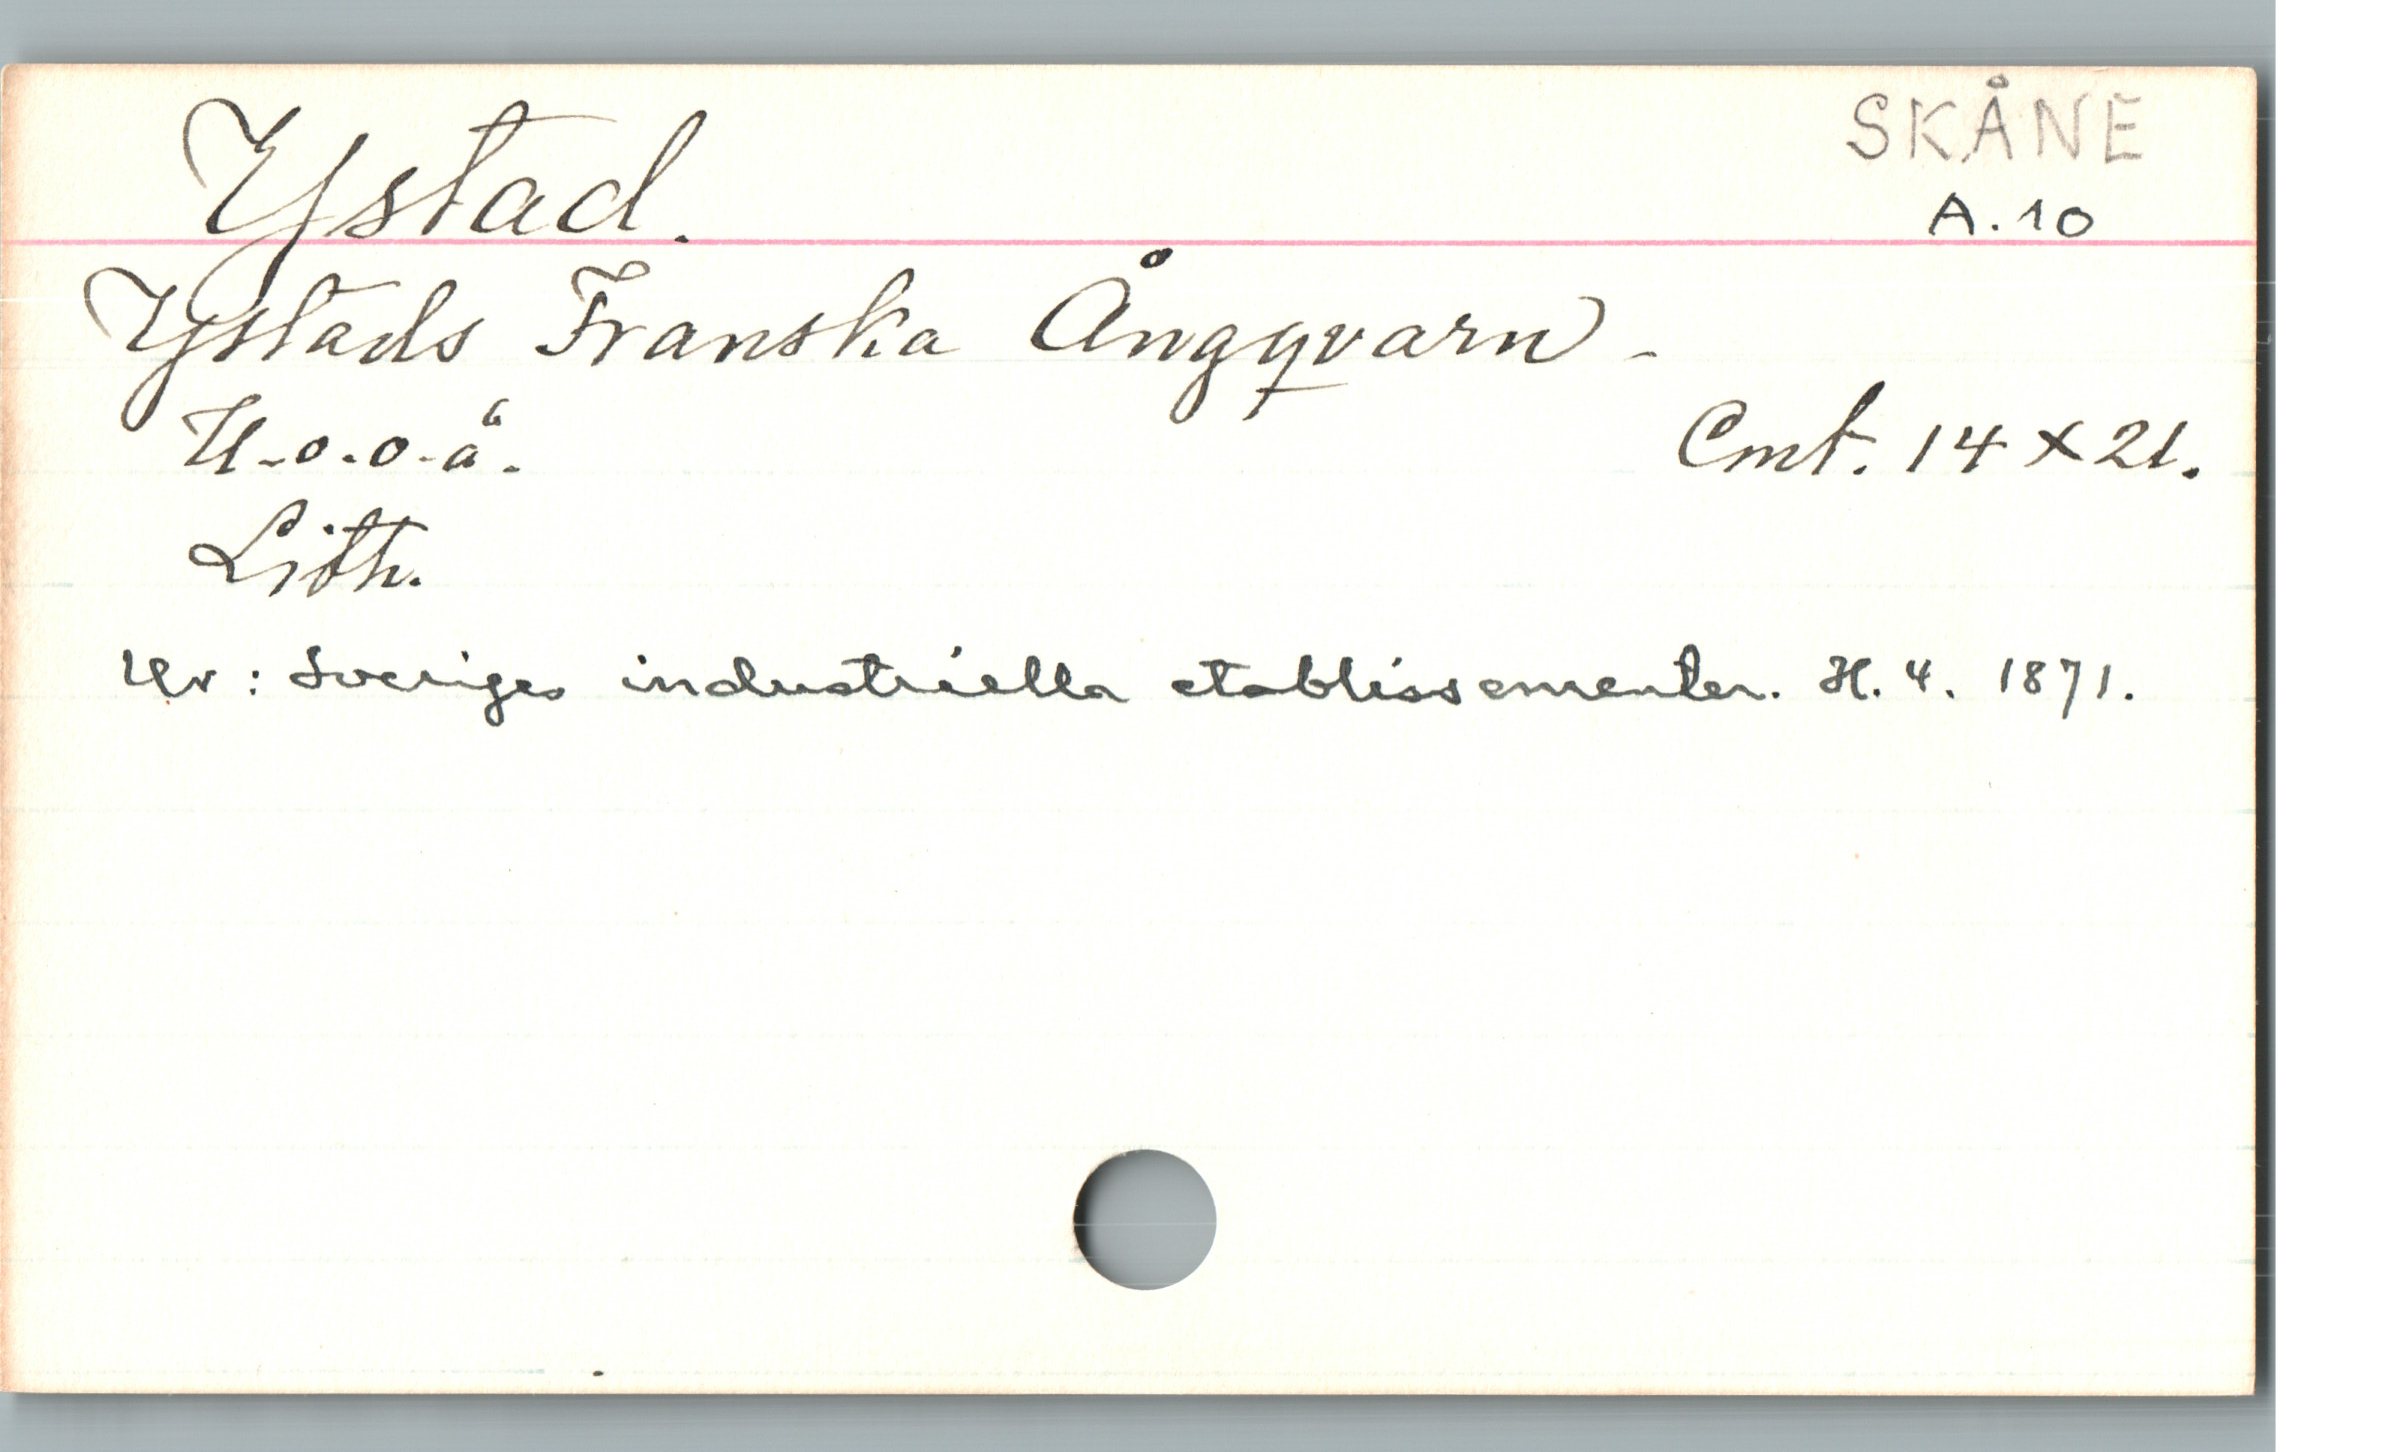 Ystad.
SKÅNE
A.10
Ystads Franska Ångqvarn -
U.o.o.å. Cmt. 14 X 21.
Lith.
Ur: Sveriges industriella etablissementer. H. 4. 1871.